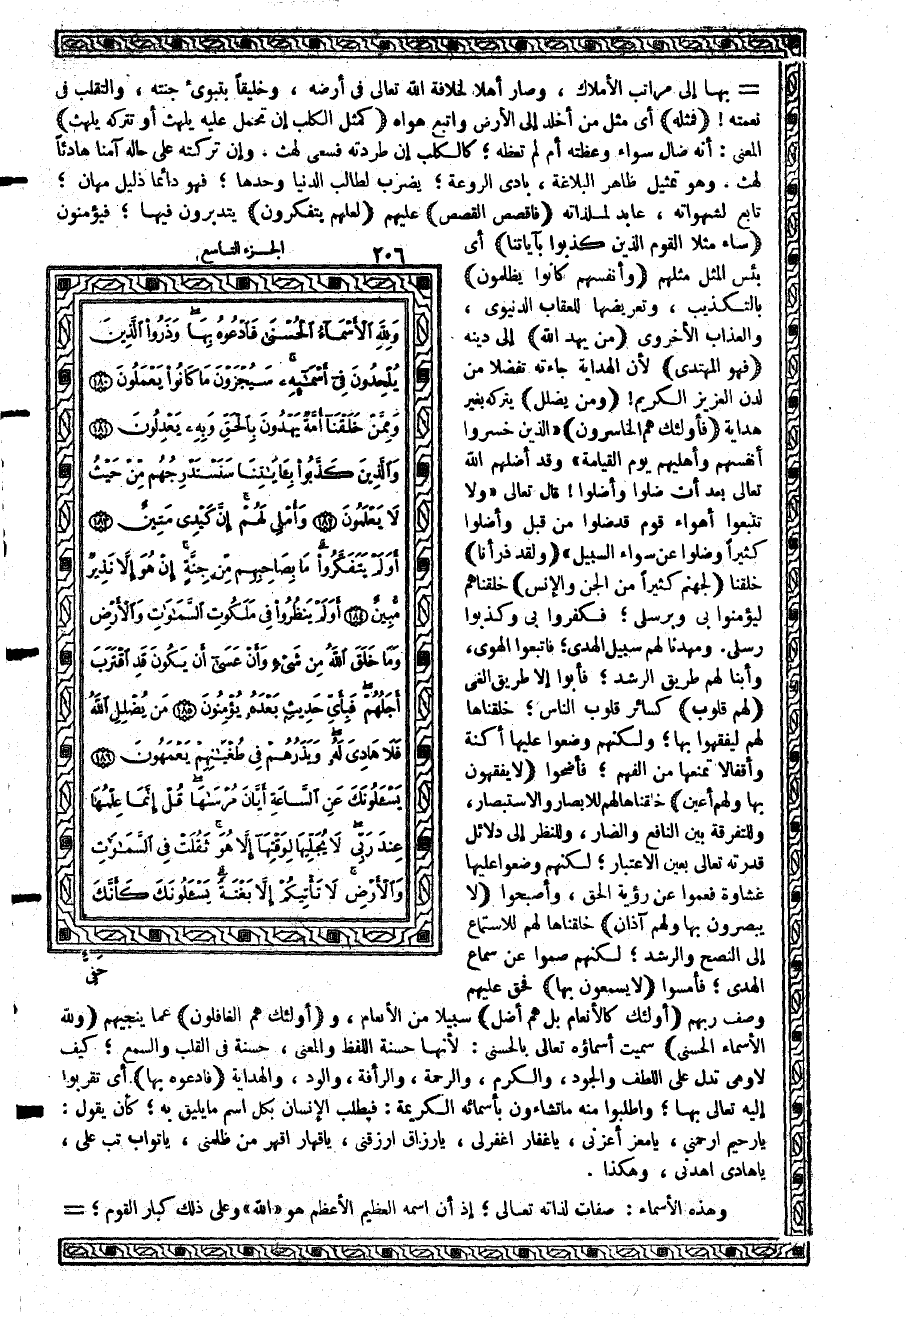 = بها إلى مراتب الأملاك ، وصار أهلا لخلافة الله تعالى فى أرضه ، وخليقاً بتبوىء جنته ، والتقلب فى
نعمته ! (فمثله) أى مثل من أخلد إلى الأرض واتبع هواه (كمثل الكلب إن تحمل عليه يلهث أو تتركه يلهث)
المعنى : أنه ضال سواء وعظته أم لم تعظه ؛ كالكلب إن طردته فسعى لهث . وإن تركته على حاله آمنا هادئاً
لهث . وهو تمثيل ظاهر البلاغة ، بادى الروعة ؛ يضرب لطالب الدنيا وحدها ؛ فهو دائما ذليل مهان ؛
تابع لشهواته ، عابد لملذاته (فاقصص القصص) عليهم (لعلهم يتفكرون) يتدبرون فيها ؛ فيؤمنون
(ساء مثلا القوم الذين كذبوا بآياتنا) أى
بئس المثل مثلهم (وأنفسهم كانوا يظلمون)
بالتكذيب ، وتعريضها للعقاب الدنيوى ،
والعذاب الأخروى (من يهد الله) إلى دينه
(فهو المهتدى) لأن الهداية جاءته تفضلا من
لدن العزيز الكريم! (ومن يضلل) يتركه بغير
هداية (فأولئك هم الخاسرون) «الذين خسروا
أنفسهم وأهليهم يوم القيامة» وقد أضلهم الله
تعالى بعد أن ضلوا وأضلوا ! قال تعالى «ولا
تتبعوا أهواء قوم قد ضلوا من قبل وأضلوا
كثيراً وضلوا عن سواء السبيل» (ولقد ذرأنا)
خلقنا (لجهنم كثيراً من الجن والإنس) خلقناهم
ليؤمنوا بى وبرسلى ؛ فكفروا بى وكذبوا
رسلى. ومهدنا لهم سبيل الهدى؛ فاتبعوا الهوى،
وأبنا لهم طريق الرشد ؛ فأبوا إلا طريق الغى
(لهم قلوب) كسائر قلوب الناس ؛ خلقناها
لهم ليفقهوا بها؛ ولكنهم وضعوا عليها أكنة
وأقفالا تمنعها من الفهم ؛ فأضحوا (لا يفقهون
بها ولهم أعين) خلقناها لهم للابصار والاستبصار،
وللتفرقة بين النافع والضار ، وللنظر إلى دلائل
قدرته تعالى بعين الاعتبار ؛ لكنهم وضعوا عليها
غشاوة فعموا عن رؤية الحق ، وأصبحوا (لا
يبصرون بها ولهم آذان) خلقناها لهم للاستماع
إلى النصح والرشد ؛ لكنهم صموا عن سماع
الهدى ؛ فأمسوا (لا يسمعون بها) فحق عليهم
٢٠٦ الجزء التاسع
وَلِلَّهِ الْأَسْمَاءُ الْحُسْنَىٰ فَادْعُوهُ بِهَا ۖ وَذَرُوا الَّذِينَ
يُلْحِدُونَ فِي أَسْمَائِهِ ۚ سَيُجْزَوْنَ مَا كَانُوا يَعْمَلُونَ ١٨٠
وَمِمَّنْ خَلَقْنَا أُمَّةٌ يَهْدُونَ بِالْحَقِّ وَبِهِ يَعْدِلُونَ ١٨١
وَالَّذِينَ كَذَّبُوا بِـَٔايَـٰتِنَا سَنَسْتَدْرِجُهُم مِّنْ حَيْثُ
لَا يَعْلَمُونَ ١٨٢ وَأُمْلِي لَهُمْ ۚ إِنَّ كَيْدِي مَتِينٌ ١٨٣
أَوَلَمْ يَتَفَكَّرُوا ۗ مَا بِصَاحِبِهِم مِّن جِنَّةٍ ۚ إِنْ هُوَ إِلَّا نَذِيرٌ
مُّبِينٌ ١٨٤ أَوَلَمْ يَنظُرُوا فِي مَلَكُوتِ السَّمَـٰوَٰتِ وَالْأَرْضِ
وَمَا خَلَقَ اللَّهُ مِن شَيْءٍ وَأَنْ عَسَىٰ أَن يَكُونَ قَدِ اقْتَرَبَ
أَجَلُهُمْ ۖ فَبِأَيِّ حَدِيثٍ بَعْدَهُ يُؤْمِنُونَ ١٨٥ مَن يُضْلِلِ اللَّهُ
فَلَا هَادِيَ لَهُ ۚ وَيَذَرُهُمْ فِي طُغْيَـٰنِهِمْ يَعْمَهُونَ ١٨٦
يَسْـَٔلُونَكَ عَنِ السَّاعَةِ أَيَّانَ مُرْسَىٰهَا ۖ قُلْ إِنَّمَا عِلْمُهَا
عِندَ رَبِّي ۖ لَا يُجَلِّيهَا لِوَقْتِهَا إِلَّا هُوَ ۚ ثَقُلَتْ فِي السَّمَـٰوَٰتِ
وَالْأَرْضِ ۚ لَا تَأْتِيكُمْ إِلَّا بَغْتَةً ۗ يَسْـَٔلُونَكَ كَأَنَّكَ
حَفِيٌّ
وصف ربهم (أولئك كالأنعام بل هم أضل) سبيلا من الأنعام ، و (أولئك هم الغافلون) عما ينجيهم (ولله
الأسماء الحسنى) سميت أسماؤه تعالى بالحسنى : لأنها حسنة اللفظ والمعنى ، حسنة فى القلب والسمع ؛ كيف
لا وهى تدل على اللطف والجود ، والكرم ، والرحمة ، والرأفة ، والود ، والهداية (فادعوه بها) أى تقربوا
إليه تعالى بها ؛ واطلبوا منه ما تشاءون بأسمائه الكريمة : فيطلب الإنسان بكل اسم ما يليق به ؛ كأن يقول :
يا رحيم ارحمنى ، يا معز أعزنى ، يا غفار اغفر لى ، يا رزاق ارزقنى ، يا قهار اقهر من ظلمنى ، يا تواب تب على ،
يا هادى اهدنى ، وهكذا .
وهذه الأسماء : صفات لذاته تعالى ؛ إذ أن اسمه العظيم الأعظم هو «الله» وعلى ذلك كبار القوم ؛ =